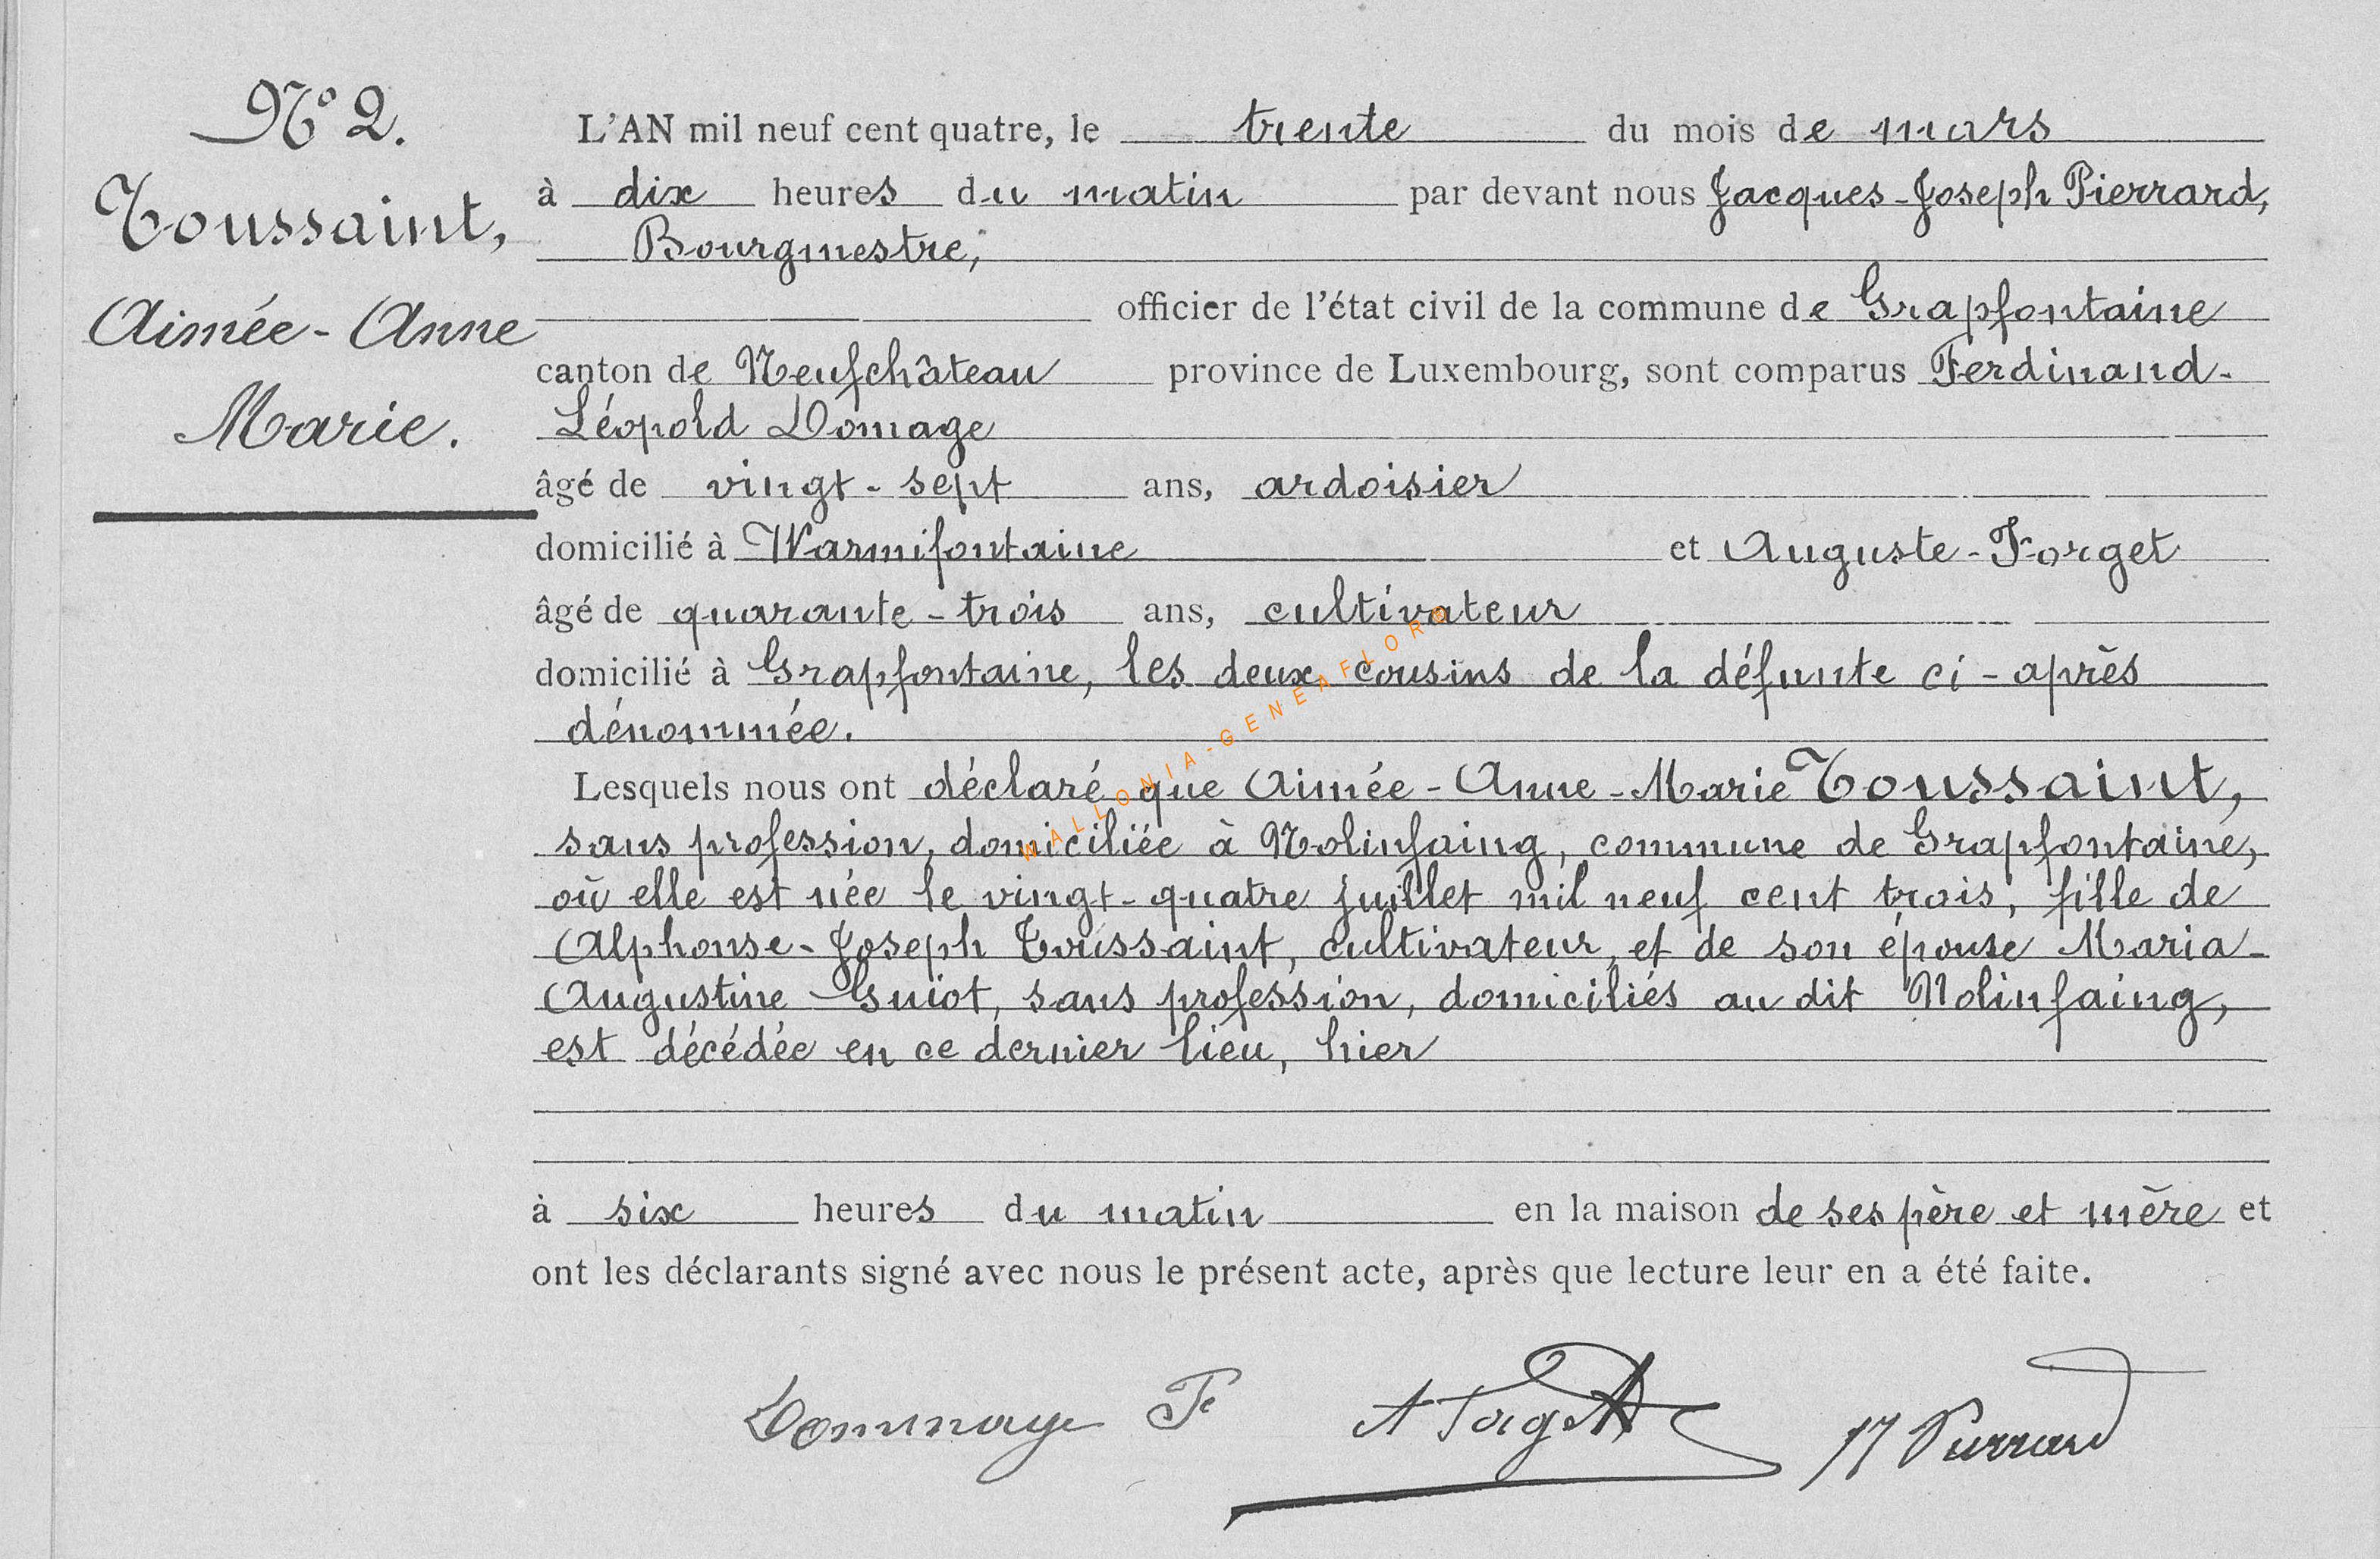 N° 2.
Toussaint,
Aimée-Anne
Marie.
L'AN mil neuf cent quatre, le trente du mois de mars
à dix heures du matin par devant nous Jacques-Joseph Pierrard,
Bourgmestre,
officier de l'état civil de la commune de Grapfontaine
canton de Neufchâteau province de Luxembourg, sont comparus Ferdinand-
Léopold Domage
âgé de vingt-sept ans, ardoisier
domicilié à Warmifontaine et Auguste-Forget
âgé de quarante-trois ans, cultivateur
domicilié à Grapfontaine, les deux cousins de la défunte ci-après
dénommée.
Lesquels nous ont déclaré que Aimée-Anne-Marie Toussaint,
sans profession, domiciliée à Nolinfaing, commune de Grapfontaine,
où elle est née le vingt-quatre juillet mil neuf cent trois, fille de
Alphonse-Joseph Toussaint, cultivateur, et de son épouse Maria-
Augustine Guiot, sans profession, domiciliés au dit Nolinfaing,
est décédée en ce dernier lieu, hier
à six heures du matin en la maison de ses père et mère et
ont les déclarants signé avec nous le présent acte, après que lecture leur en a été faite.
Dommage F A Forget Pierrard
WALLONIA-GENEAFLORE